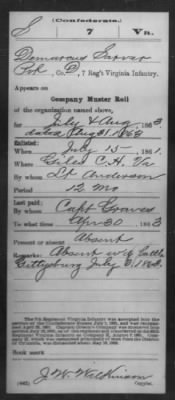 (Confederate.)
S 7 Va.
Demarcus Sarver
Co. D, 7 Reg't Virginia Infantry.
Appears on
Company Muster Roll
of the organization named above,
for July & Aug, 1863
dated Aug 31, 1863
Enlisted:
When July 15, 1861.
Where Giles C.H. Va
By whom Lt Anderson
Period 12 Mo
Last paid:
By whom Capt Graves
To what time Apr 30, 1863
Present or absent Absent
Remarks: Absent Battle
Gettysburg July 3, 1863.
Book mark:
J. W. Wilkinson
(642) Copyist.